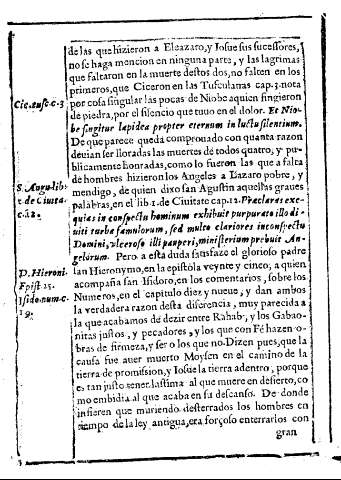 de las que hizieron a Eleazaro, y Iosue sus sucessores,
no se haga mencion en ninguna parte, y las lagrimas
que faltaron en la muerte destos dos, no falten en los
primeros, que Ciceron en las Tusculanas cap. 3. nota
Cic. tusc. c. 3
por cosa singular las pocas de Niobe aquien fingieron
de piedra, por el silencio que tuuo en el dolor. Et Nio-
be fingitur lapidea propter eternum in luctu silentium.
De que parece queda comprouado con quanta razon
deuian ser lloradas las muertes de todos quatro, y pu-
blicamente honradas, como lo fueron las que a falta
de hombres hizieron los Angeles a Lazaro pobre, y
S. Augu. lib.
mendigo, de quien dixo san Agustin aquellas graues
1. de Ciuita.
palabras, en el lib. 1. de Ciuitate cap. 12. Præclaras exe-
c. 12.
quias in conspectu hominum exhibuit purpurato illo di-
uiti turba famulorum, sed multo clariores in conspectu
Domini, vlceroso illi pauperi, ministerium prebuit An-
gelorum. Pero a esta duda satisfaze el glorioso padre
D. Hieroni.
san Hieronymo, en la epistola veynte y cinco, a quien
Epist. 25.
acompaña san Isidoro, en los comentarios, sobre los
Isido. num. c.
Numeros, en el capitulo diez y nueue, y dan ambos
19.
la verdadera razon desta diferencia, muy parecida a
la que acabamos de dezir entre Rahab, y los Gabao-
nitas justos, y pecadores, y los que con Fé hazen o-
bras de firmeza, y ser o los que no. Dizen pues, que la
causa fue auer muerto Moysen en el camino de la
tierra de promission, y Iosue la tierra adentro, porque
es tan justo tener lastima al que muere en desierto, co
mo embidia al que acaba en su descanso. De donde
infieren que muriendo desterrados los hombres en
tiempo de la ley antigua, era forçoso enterrarlos con
gran